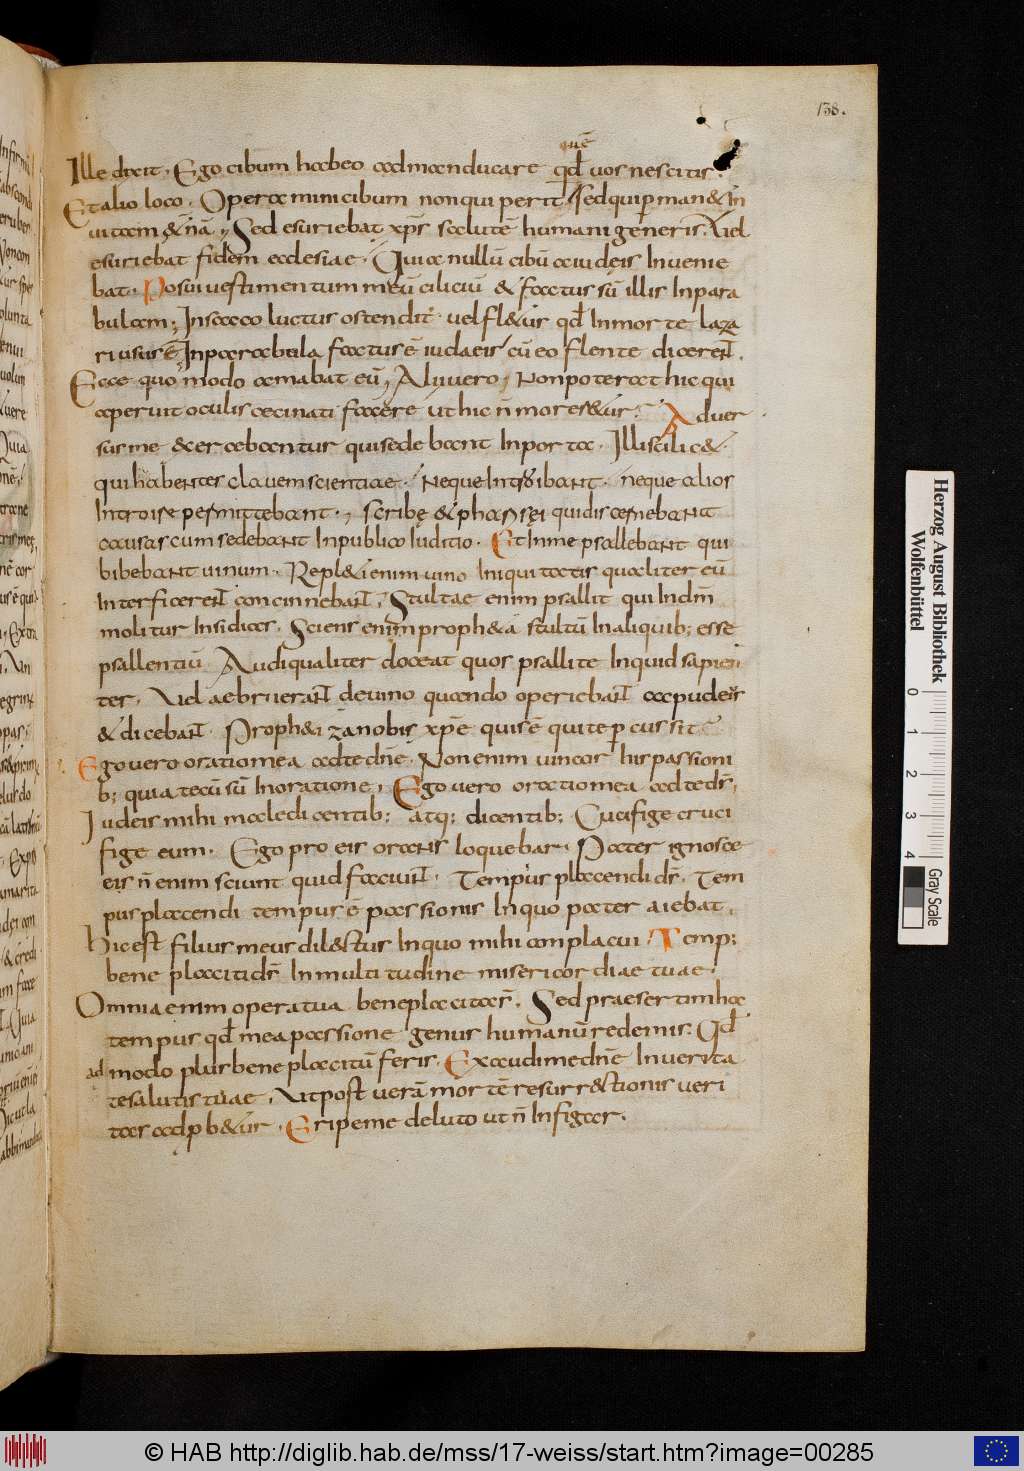 138.
quē
Ille dixit. Ego cibum habeo ad manducare qd̄ uos nescitis.
Et alio loco. Operamini cibum non qui perit sed qui permanet in
uitam aet̄nā. Sed esuriebat xp̄s salutē humani generis. Vel
esuriebat fidem ecclesiae. Quia nullū cibū a iudeis inuenie
bat. Posui uestimentum meū ciliciū & factus sū illis in para
bulam. In sacco luctus ostendit. uel fl&ur qd̄ in morte laza
ri usus ē. In parabula factus ē iudaeis cū eo flente dicerent.
Ecce quomodo amabat eū, Alii uero, Non poterat hic qui
aperuit oculis caeci nati facere ut hic n̄ moreretur. Aduer
sum me exercebantur qui sedebant in porta. Illis scilic&
qui habentes clauem scientiae. Neque introibant. neque alios
introire permittebant. scribę & pharisęi qui discernebant
causas cum sedebant in publico iuditio. Et in me psallebant qui
bibebant uinum. Repl&i enim uino iniquitatis qualiter eū
interficerent concinnebant. Stultae enim psallit qui in dn̄m
molitur insidias. Sciens enim proph&a stultū in aliquib; esse
psallentiū. Audi qualiter doceat quos psallite inquid sapien
ter. Vel aebrii erant de uino quando operiebant xp̄i udeis
& dicebant. Proph&iza nobis xp̄e quis ē qui te percussit
Ego uero oratio mea ad te dn̄e. Non enim uincor his passioni
b; quia tecū sū in oratione. Ego uero oratio mea ad te ds̄.
Iudeis mihi maledicentib; atq; dicentib; Cucifige cruci
fige eum. Ego pro eis orans loquebar. Pater ignosce
eis n̄ enim sciunt quid faciunt. Tempus placendi ds̄. Tem
pus placendi tempus ē passionis in quo pater aiebat.
Hic est filius meus dilectus in quo mihi complacui. Temp;
bene placiti ds̄ in multitudine misericordiae tuae.
Omnia enim opera tua beneplacita s̄. Sed praesertim hoc
tempus qd̄ mea passione genus humanū redemis. Qd̄
admodo plus beneplacitū feris. Exaudi me dn̄e in uerita
te salutis tuae. Vt post uerā mortē resurrectionis ueri
tas adp̄b&ur. Eripe me de luto ut n̄ infigar.
Herzog August Bibliothek
Wolfenbüttel
0 1 2 3 4
Gray Scale
© HAB http://diglib.hab.de/mss/17-weiss/start.htm?image=00285